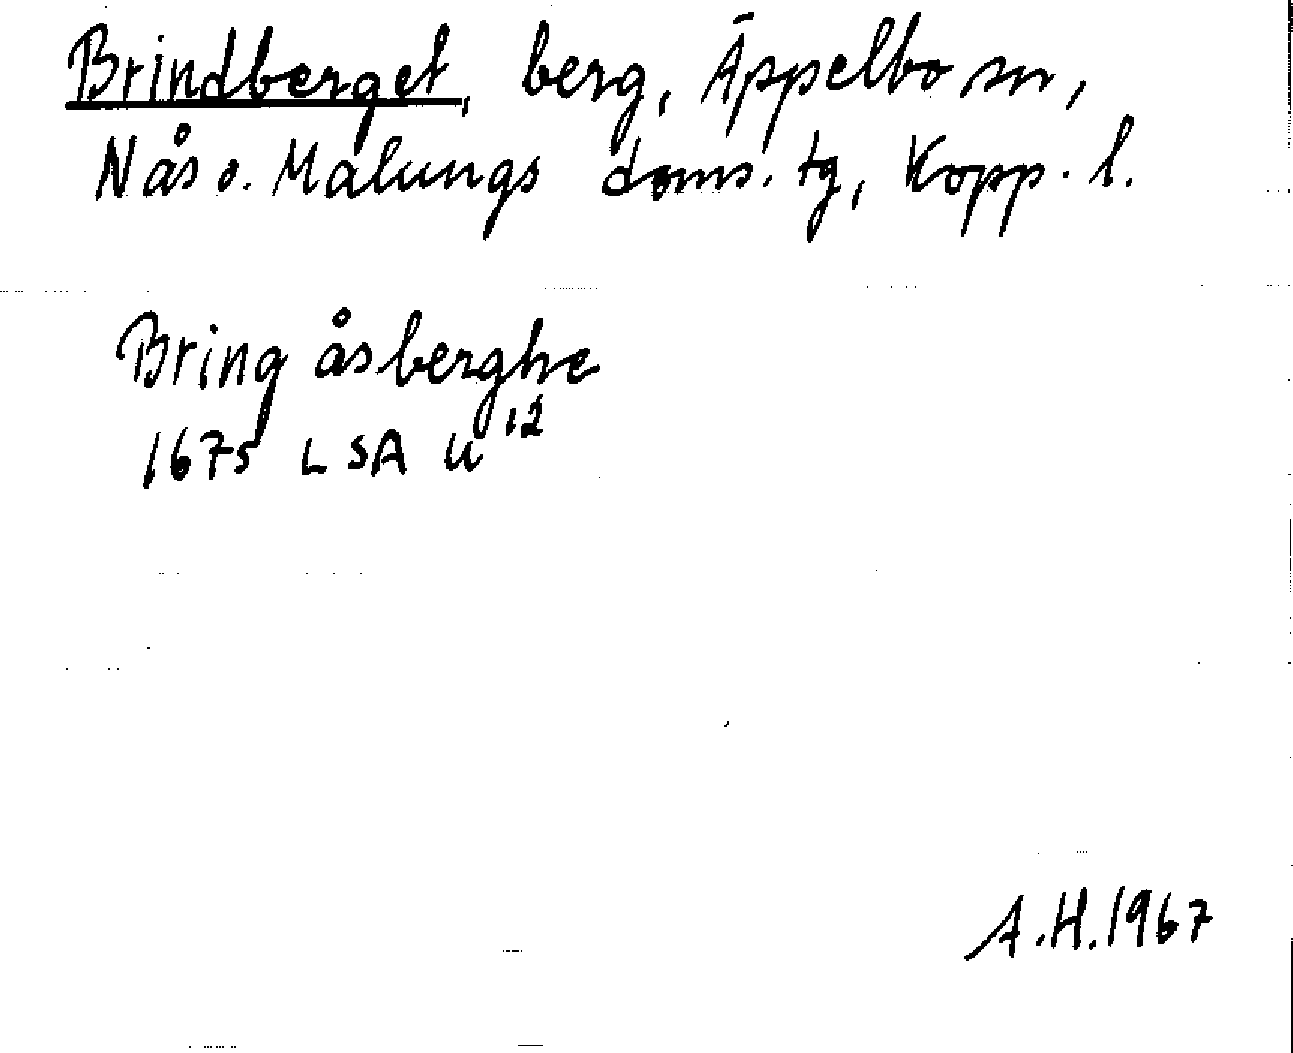 Brindberget, berg, Äppelbo sn,
Nås o. Malungs doms. tg, Kopp. l.
Bring åsberghe
1675 LSA U 12
A.H. 1967